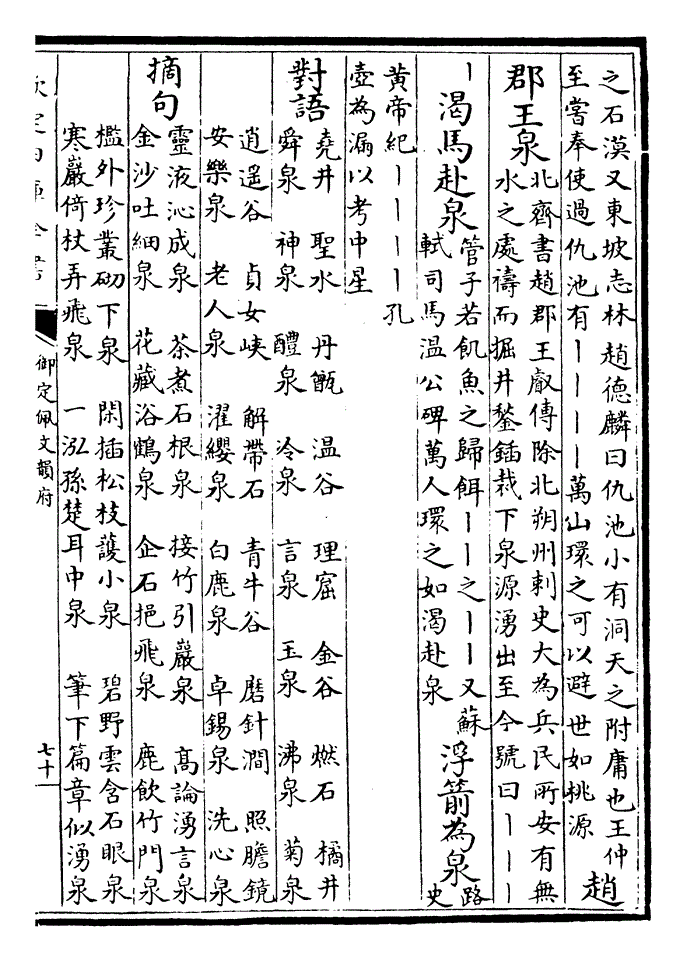 之石漠又東坡志林趙德麟曰仇池小有洞天之附庸也王仲
至嘗奉使過仇池有丨丨丨丨萬山環之可以避世如桃源
趙
郡王泉
北齊書趙郡王叡傳除北朔州刺史大為兵民所安有無
水之處禱而掘井鍫鍤裁下泉源湧出至今號曰丨丨丨
丨渴馬赴泉
管子若飢魚之歸餌丨丨之丨丨又蘇
軾司馬温公碑萬人環之如渴赴泉
浮箭為泉
路
史
黄帝紀丨丨丨丨孔
壺為漏以考中星
對語
堯井 聖水 丹甑 温谷 理窟 金谷 燃石 橘井
舜泉 神泉 醴泉 冷泉 言泉 玉泉 沸泉 菊泉
逍遥谷 貞女峽 解帶石 青牛谷 磨針澗 照膽鏡
安樂泉 老人泉 濯纓泉 白鹿泉 卓錫泉 洗心泉
摘句
靈液沁成泉 茶煮石根泉 接竹引巖泉 高論湧言泉
金沙吐細泉 花藏浴鶴泉 企石挹飛泉 鹿飲竹門泉
檻外珍叢砌下泉 閑插松枝護小泉 碧野雲含石眼泉
寒巖倚杖弄飛泉 一泓孫楚耳中泉 筆下篇章似湧泉
欽定四庫全書
御定佩文韻府
七十